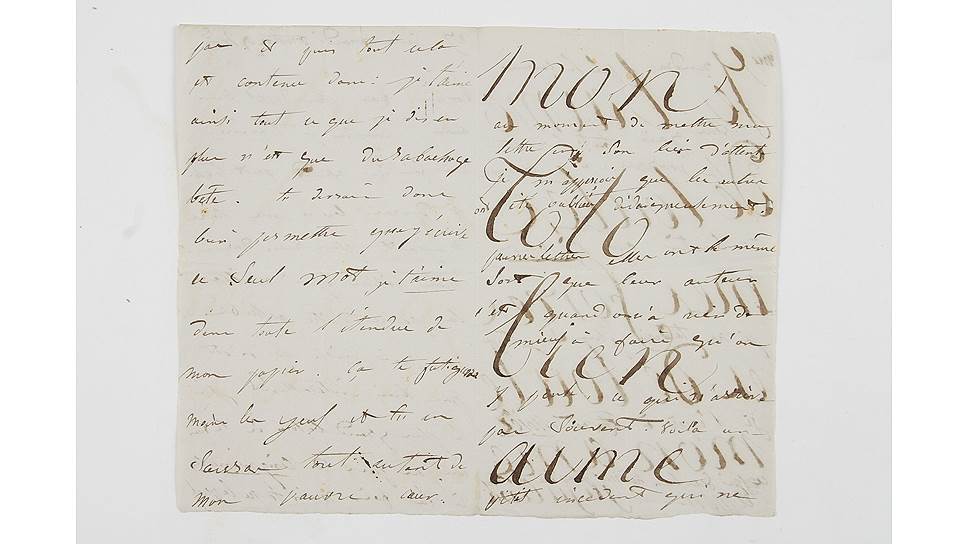 pas. et puis tout cela
est contenu dans: je t'aime
ainsi tout ce que je dis en
plus n'est que du rabachage
bête. tu devrais donc
bien permettre que j'écrive
ce seul mot je t'aime
dans toute l'étendue de
mon papier. ça te fatiguera
moins les yeux et tu en
sauras tout autant de
mon pauvre cœur.
mon
au moment de mettre ma
lettre dans son lieu d'attente
je m'apperçois que les autres
ont été oubliées dédaigneusement.
Toto
pauvres lettres elles ont le même
sort que leur auteur
c'est quand on n'a rien de
mieux à faire qu'on
bien
y pense. ce qui n'arrive
pas souvent. Voilà un
aimé
petit incident qui ne